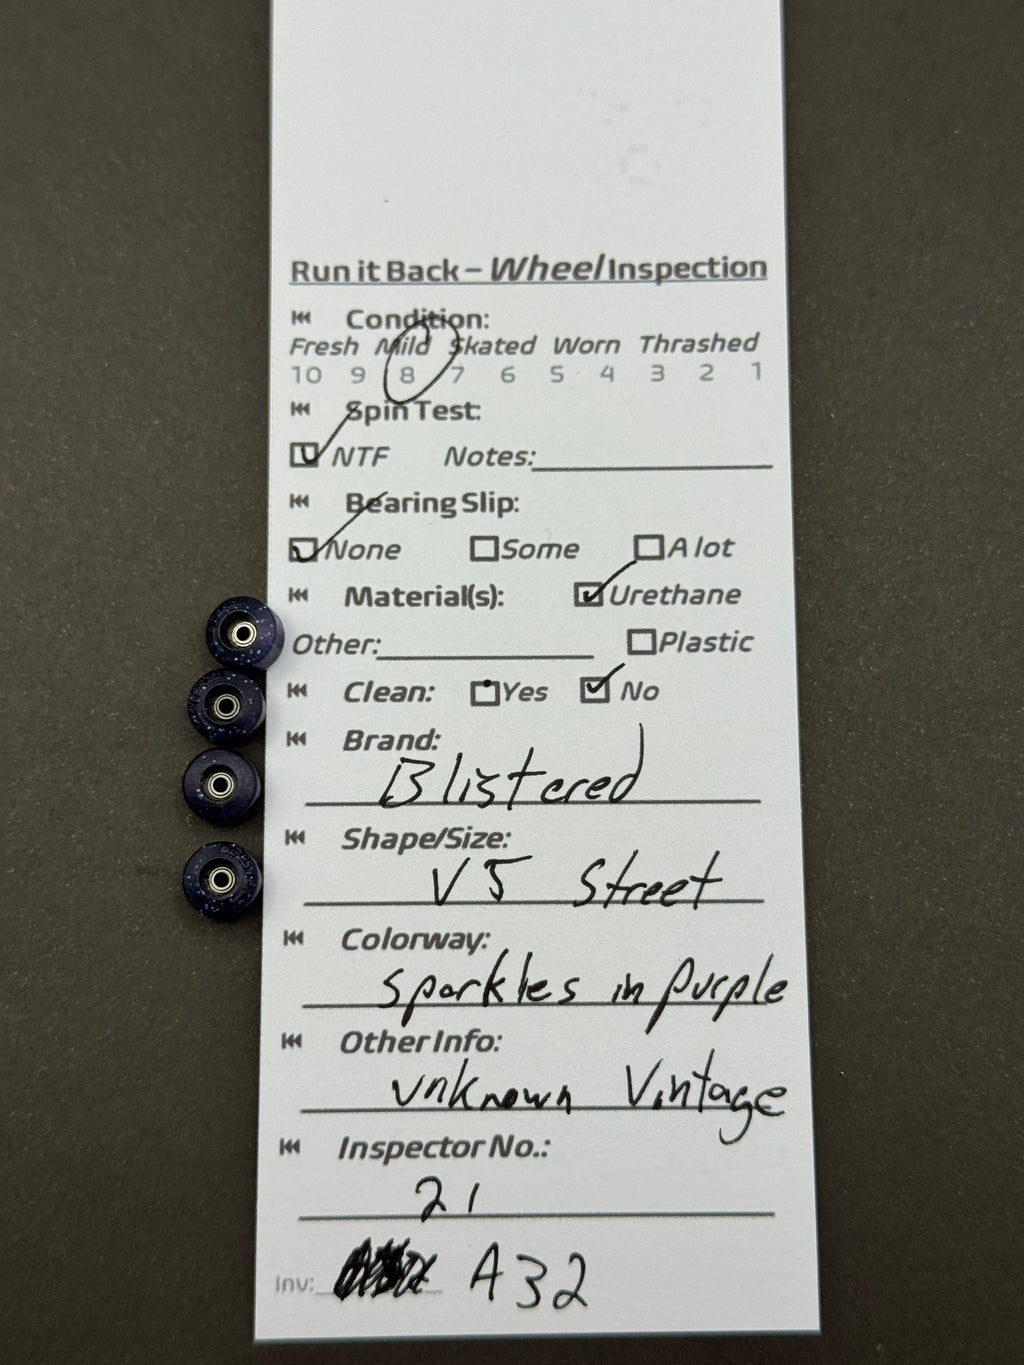 Run it Back – Wheel Inspection
Condition:
Fresh Mild Skated Worn Thrashed
10 9 8 7 6 5 4 3 2 1
Spin Test:
NTF Notes:
Bearing Slip:
None Some A lot
Material(s): Urethane
Other: Plastic
Clean: Yes No
Brand:
Blistered
Shape/Size:
V5 Street
Colorway:
Sparkles in Purple
Other Info:
Unknown Vintage
Inspector No.:
21
Inv: A32